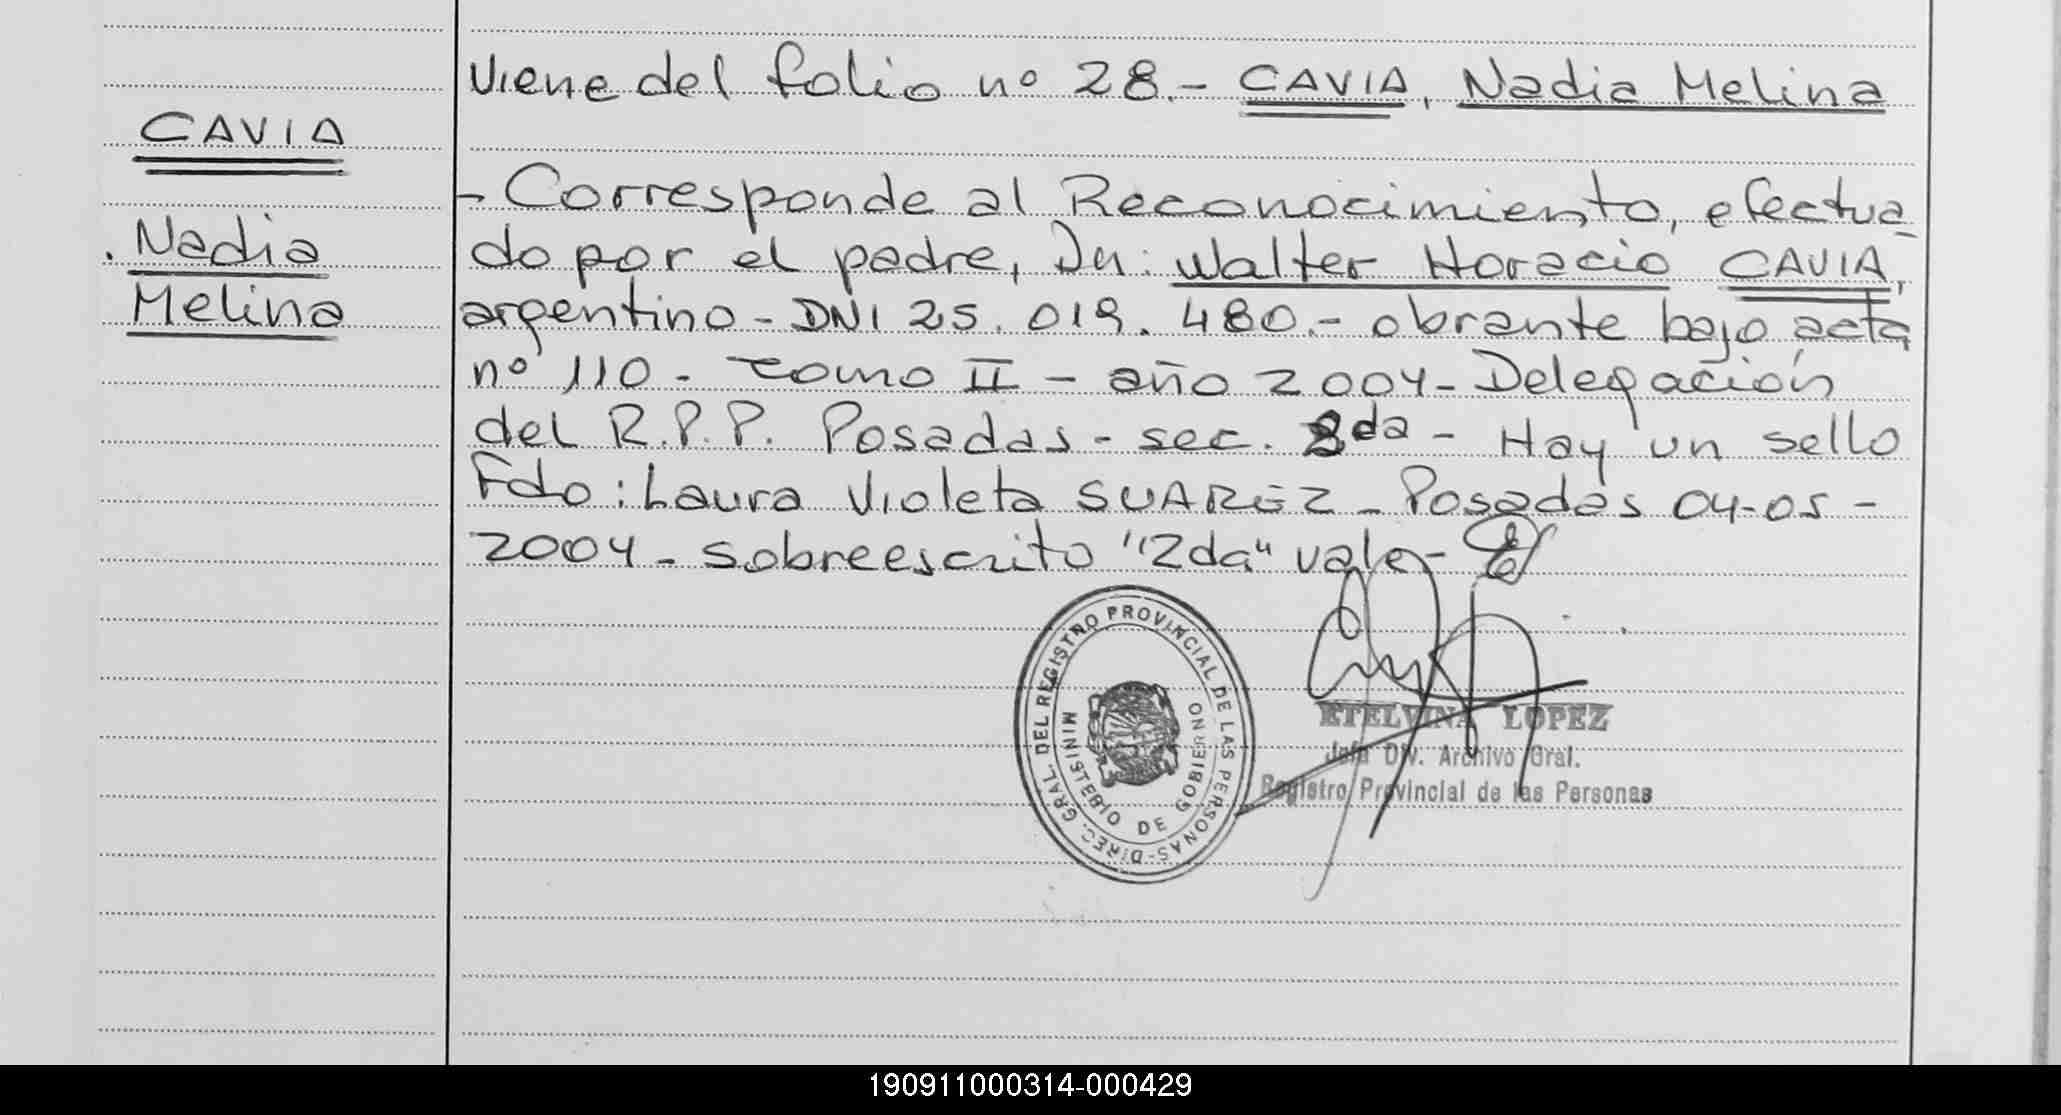 Viene del folio nº 28.- CAVIA, Nadia Melina
CAVIA
. Nadia
Melina
- Corresponde al Reconocimiento, efectua
do por el padre, Dn: Walter Horacio CAVIA,
argentino - DNI 25.019.480.- obrante bajo acta
nº 110 - tomo II - año 2004 - Delegación
del R.P.P. Posadas - sec. 2da - Hay un sello
Fdo: Laura Violeta SUAREZ - Posadas 04-05-
2004 - Sobreescrito "2da" vale -
DIREC. GRAL. DEL REGISTRO PROVINCIAL DE LAS PERSONAS-
MINISTERIO DE GOBIERNO
ETELVINA LOPEZ
Jefa Div. Archivo Gral.
Registro Provincial de las Personas
190911000314-000429